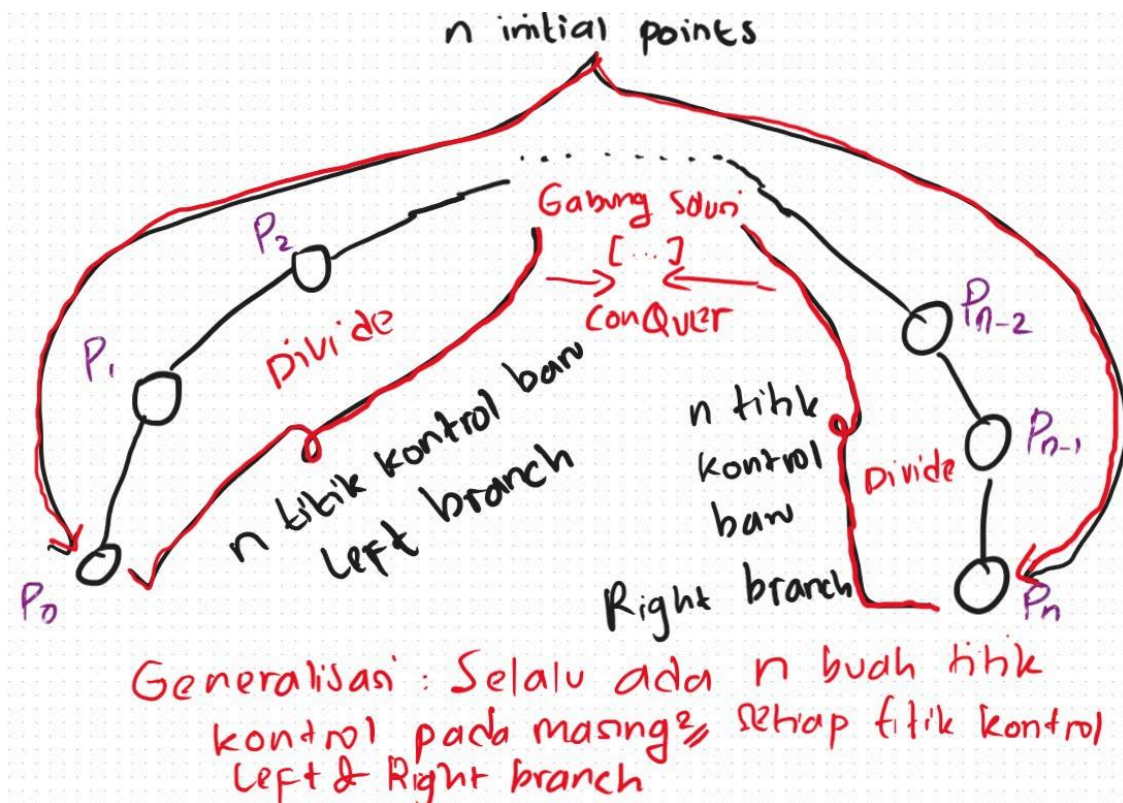 n initial points
Gabung Solusi
[...]
ConQuer
P2
Divide
P1
P0
n titik kontrol baru
Left branch
n titik
kontrol
baru
Right branch
Divide
Pn-2
Pn-1
Pn
Generalisasi : Selalu ada n buah titik
kontrol pada masing² setiap titik kontrol
Left & Right branch